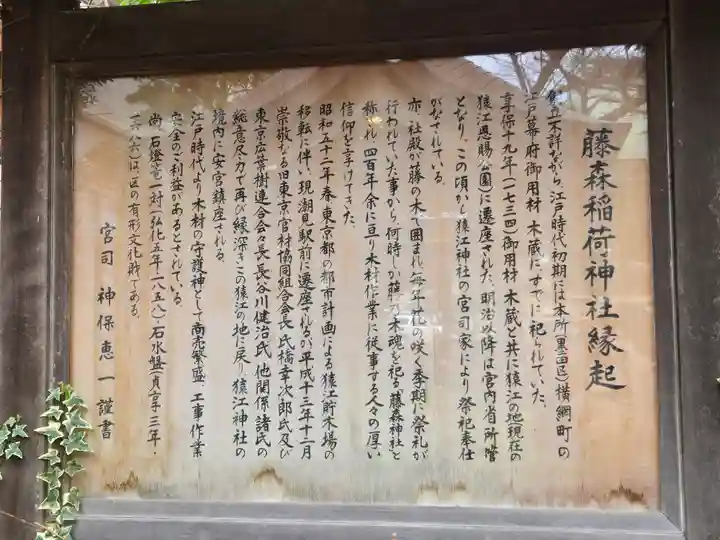 藤森稲荷神社縁起
創立不詳ながら、江戸時代初期には本所(墨田区)横網町の
江戸幕府御用材木蔵にすでに祀られていた。
享保十九年(一七三四)御用材木蔵と共に猿江の地現在の
猿江恩賜公園に遷座された。明治以降は宮内省所管
となり、この頃から猿江神社の宮司家により祭祀奉仕
がなされている。
亦、社殿が藤の木で囲まれ毎年花の咲く季節に祭礼が
行われていた事から、何時しか藤の木魂を祀る「藤森神社」と
称され、四百年余に亘り木材作業に従事する人々の厚い
信仰を享けてきた。
昭和五十二年春、東京都の都市計画による猿江貯木場の
移転に伴い、現潮見駅前に遷座されるが、平成十三年十二月
崇敬なる旧東京官材協同組合会長氏橋幸次郎氏及び
東京広葉樹連合会々長長谷川健治氏、他関係諸氏の
総意尽力で再び縁深きこの猿江の地に戻り猿江神社の
境内に安宮鎮座される。
江戸時代より木材の守護神として商売繁盛、工事作業
安全のご利益があるとされている。
尚、石燈篭一対(弘化五年・一八五八)・石水盤(貞享三年・
一六八六)は、区の有形文化財である。
宮司 神保恵一謹書